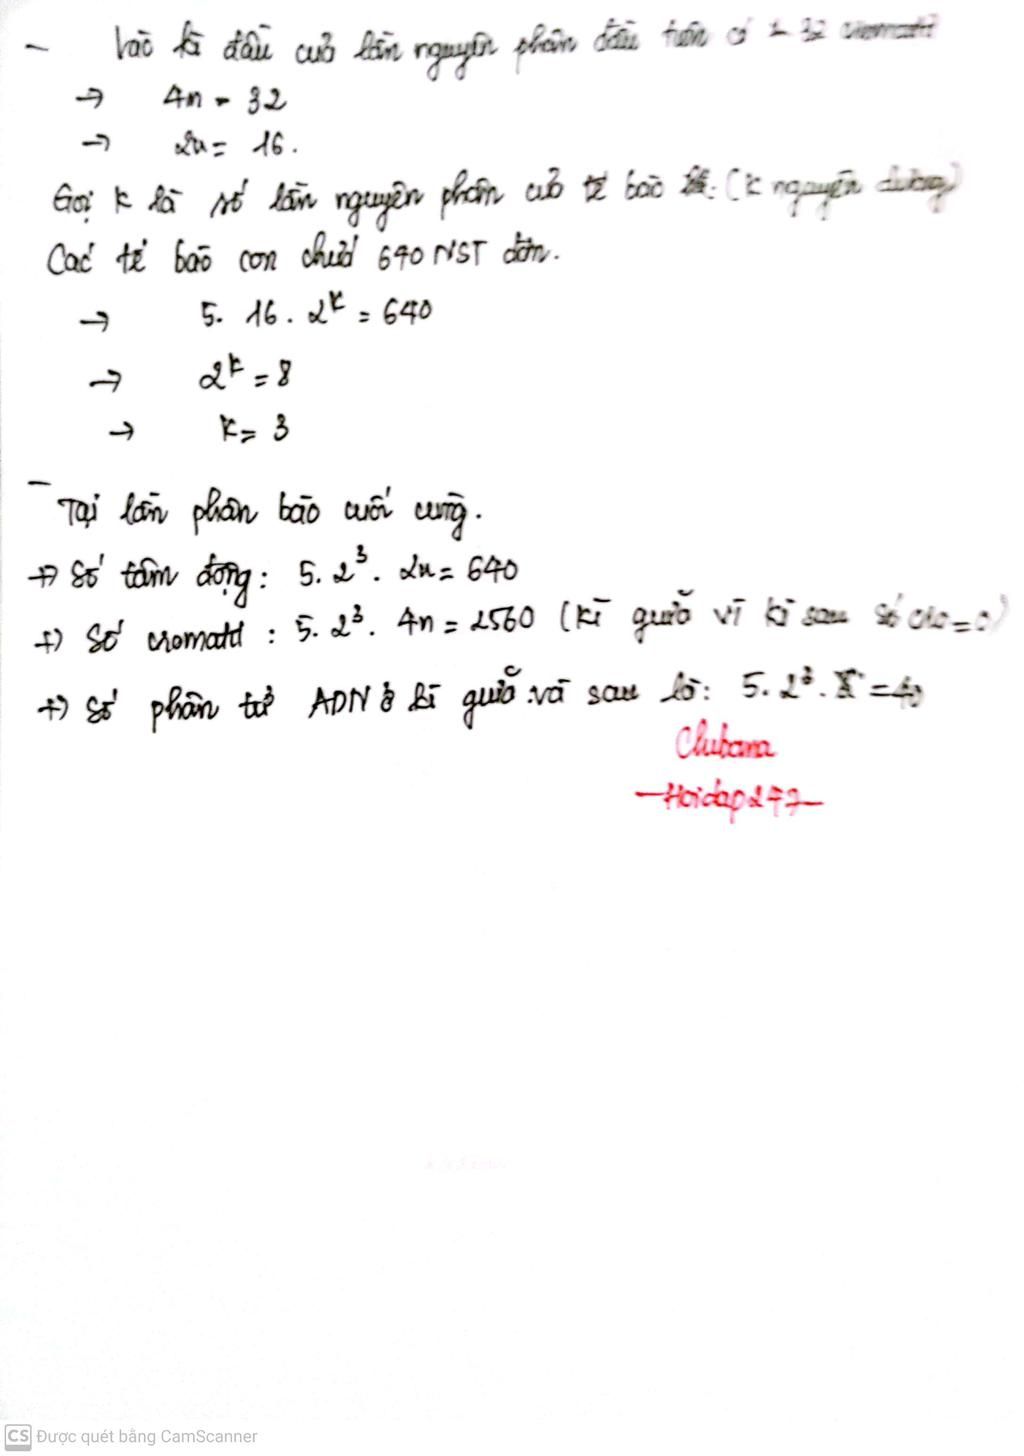 - Vào kì đầu của lần nguyên phân đầu tiên có 32 cromatit
→ 4n = 32
→ 2n = 16.
Gọi k là số lần nguyên phân của tế bào (k nguyên dương)
Các tế bào con chứa 640 NST đơn.
→ 5. 16. 2^k = 640
→ 2^k = 8
→ k = 3
- Tại lần phân bào cuối cùng.
+) Số tâm động: 5. 2³. 2n = 640
+) Số cromatit : 5. 2³. 4n = 2560 (kì giữa vì kì sau số = 0)
+) Số phân tử ADN ở kì giữa và sau là: 5. 2³. = 40
Clubana
-Hoidap247-
CS Được quét bằng CamScanner